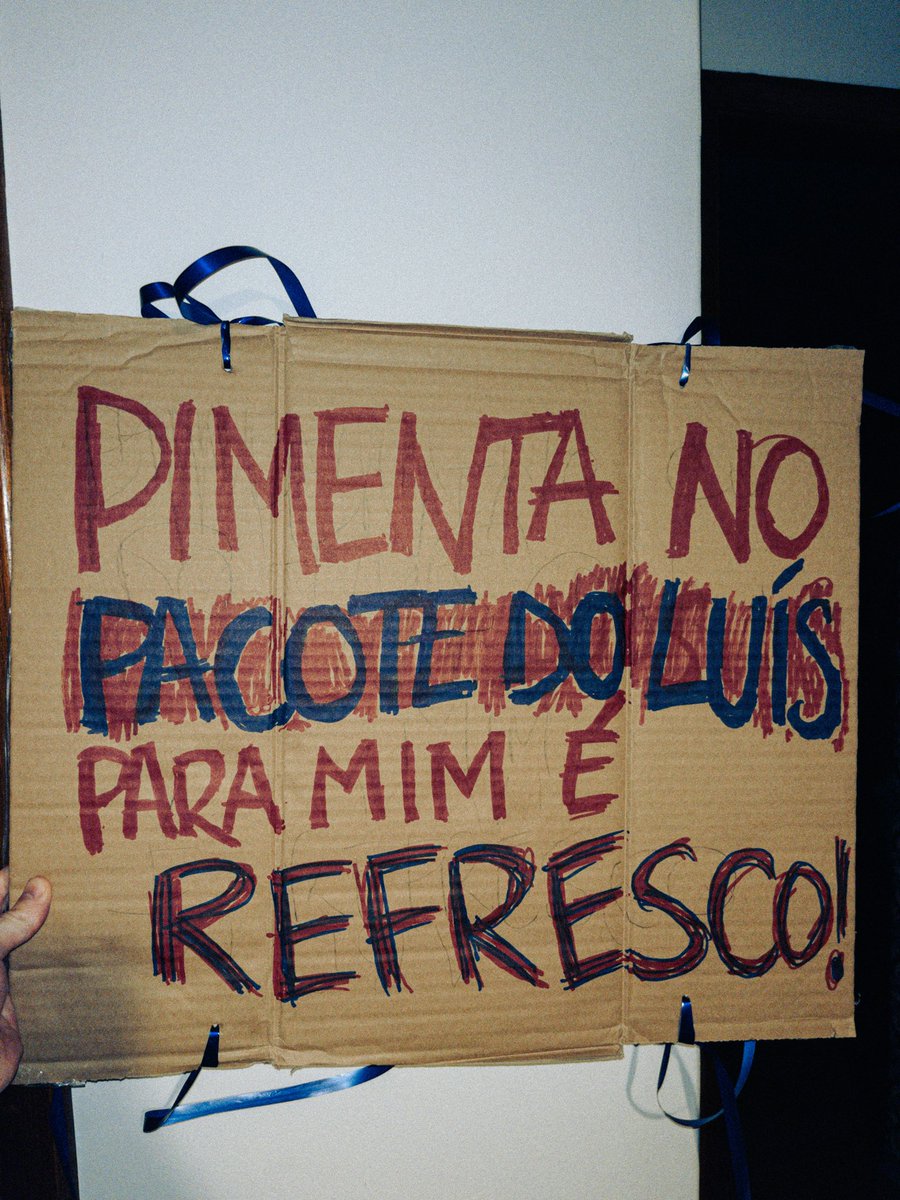 PIMENTA NO
PACOTE DO LUÍS
PARA MIM É
REFRESCO!